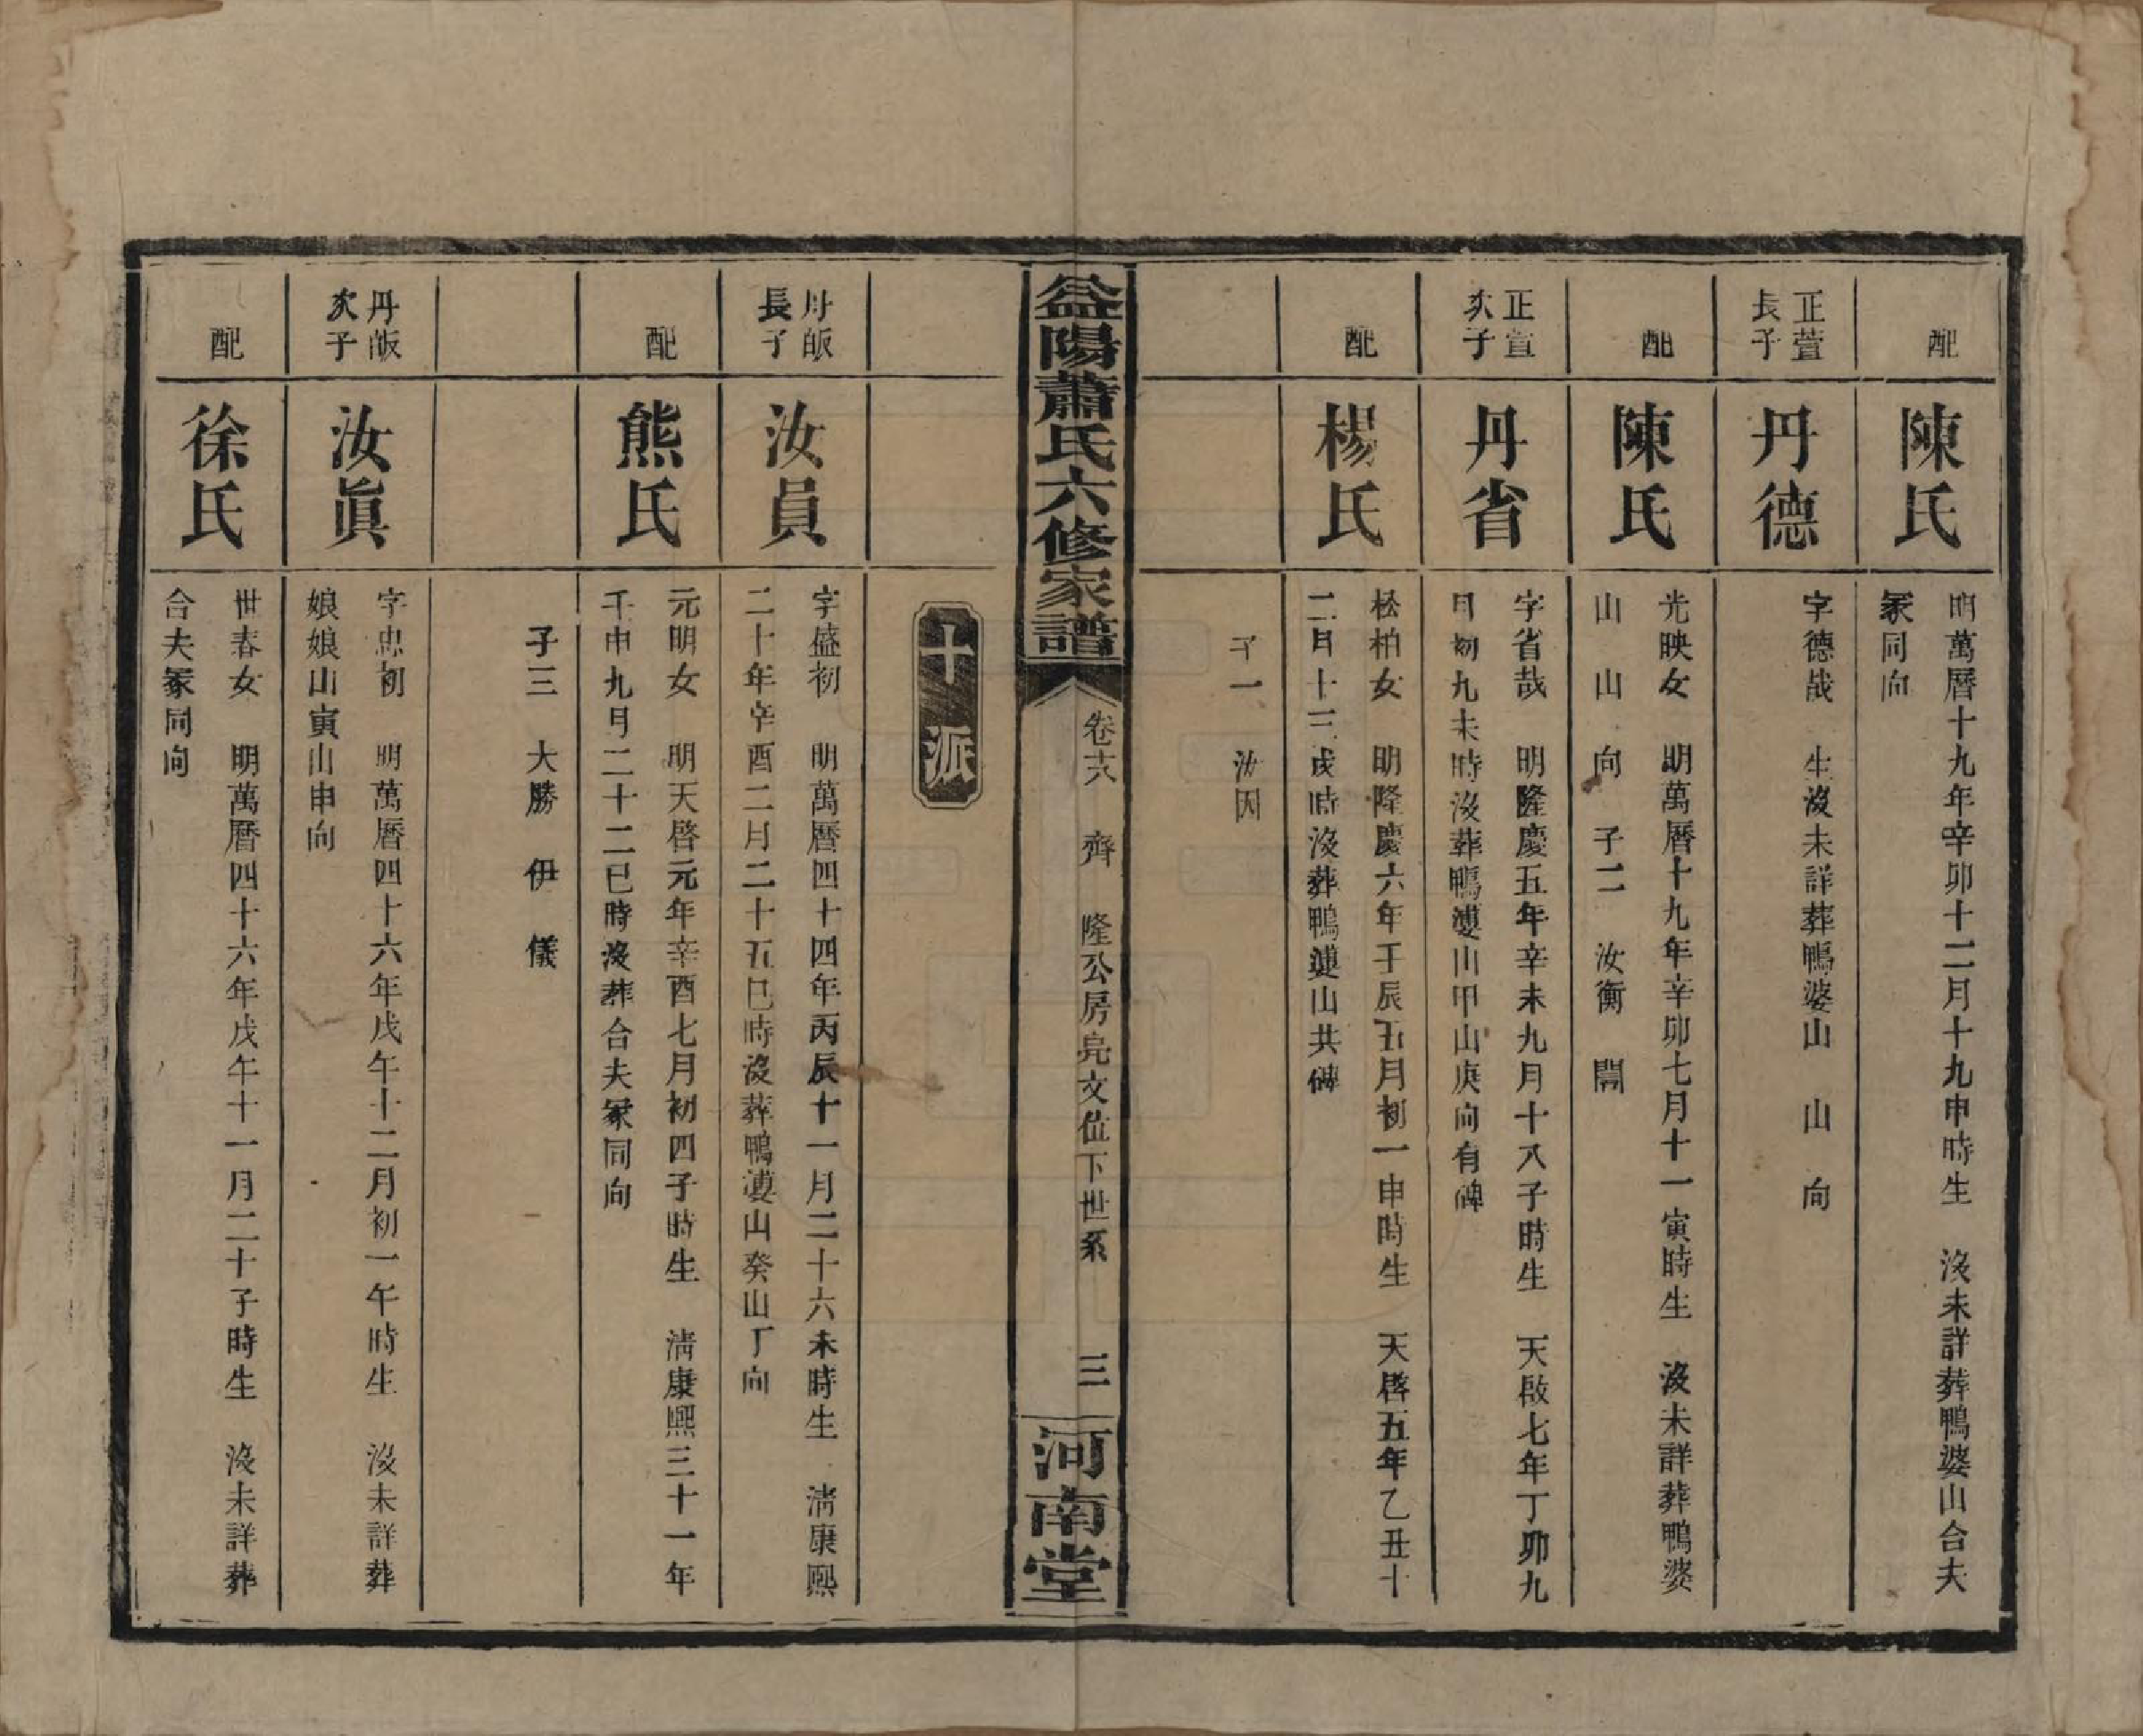 配
陳氏
明萬曆十九年辛卯十二月十九申時生　沒未詳葬鴨婆山合夫
冢同向
正萱
長子
丹德
字德哉　生沒未詳葬鴨婆山　山　向
配
陳氏
光映女　明萬曆十九年辛卯七月十一寅時生　沒未詳葬鴨婆
山　山　向　子二　汝衡　闇
正萱
次子
丹省
字省哉　明隆慶五年辛未九月十八子時生　天啟七年丁卯九
月初九未時沒葬鴨婆山甲山庚向有碑
配
楊氏
松柏女　明隆慶六年壬辰五月初一申時生　天啓五年乙丑十
二月十三戌時沒葬鴨婆山共碑
子一　汝因
益陽蕭氏六修家譜
卷十六　齊　隆公房亮文位下世系　三
河南堂
十派
丹皈
長子
汝員
字盛初　明萬曆四十四年丙辰十一月二十六未時生　淸康熙
二十年辛酉二月二十五巳時沒葬鴨婆山癸山丁向
配
熊氏
元明女　明天啓元年辛酉七月初四子時生　淸康熙三十一年
壬申九月二十二巳時沒葬合夫冢同向
子三　大勝　伊　儀
丹皈
次子
汝眞
字忠初　明萬曆四十六年戊午十二月初一午時生　沒未詳葬
娘娘山寅山申向
配
徐氏
世春女　明萬曆四十六年戊午十一月二十子時生　沒未詳葬
合夫冢同向